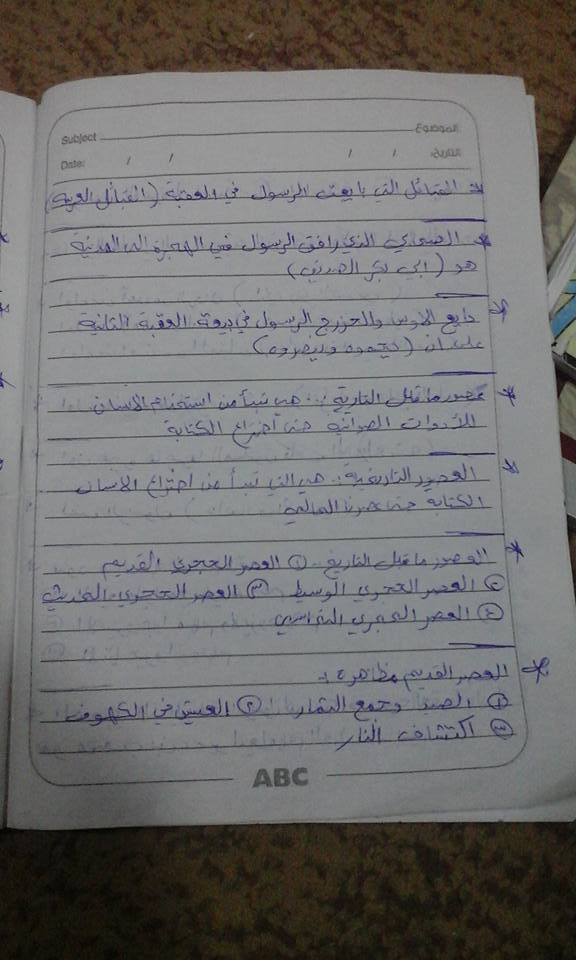 Subject الموضوع
Date: / / / / التاريخ:
* القبائل التي بايعت الرسول في العقبة (القبائل العربية)
* الصحابي الذي رافق الرسول في الهجرة الى المدينة
هو (ابي بكر الصديق)
* بايع الاوس والخزرج الرسول في بيعة العقبة الثانية
على ان (يحموه وينصروه)
* عصور ما قبل التاريخ :. هي تبدأ من استخدام الانسان
للأدوات الصوانية حتى اختراع الكتابة
* العصور التاريخية :. هي التي تبدأ من اختراع الانسان
الكتابة حتى عصرنا الحالي
* العصور ما قبل التاريخ ① العصر الحجري القديم
② العصر الحجري الوسيط ③ العصر الحجري الحديث
④ العصر الحجري النحاسي
* العصر القديم مظاهره :-
① الصيد وجمع الثمار ② العيش في الكهوف
③ اكتشاف النار
ABC